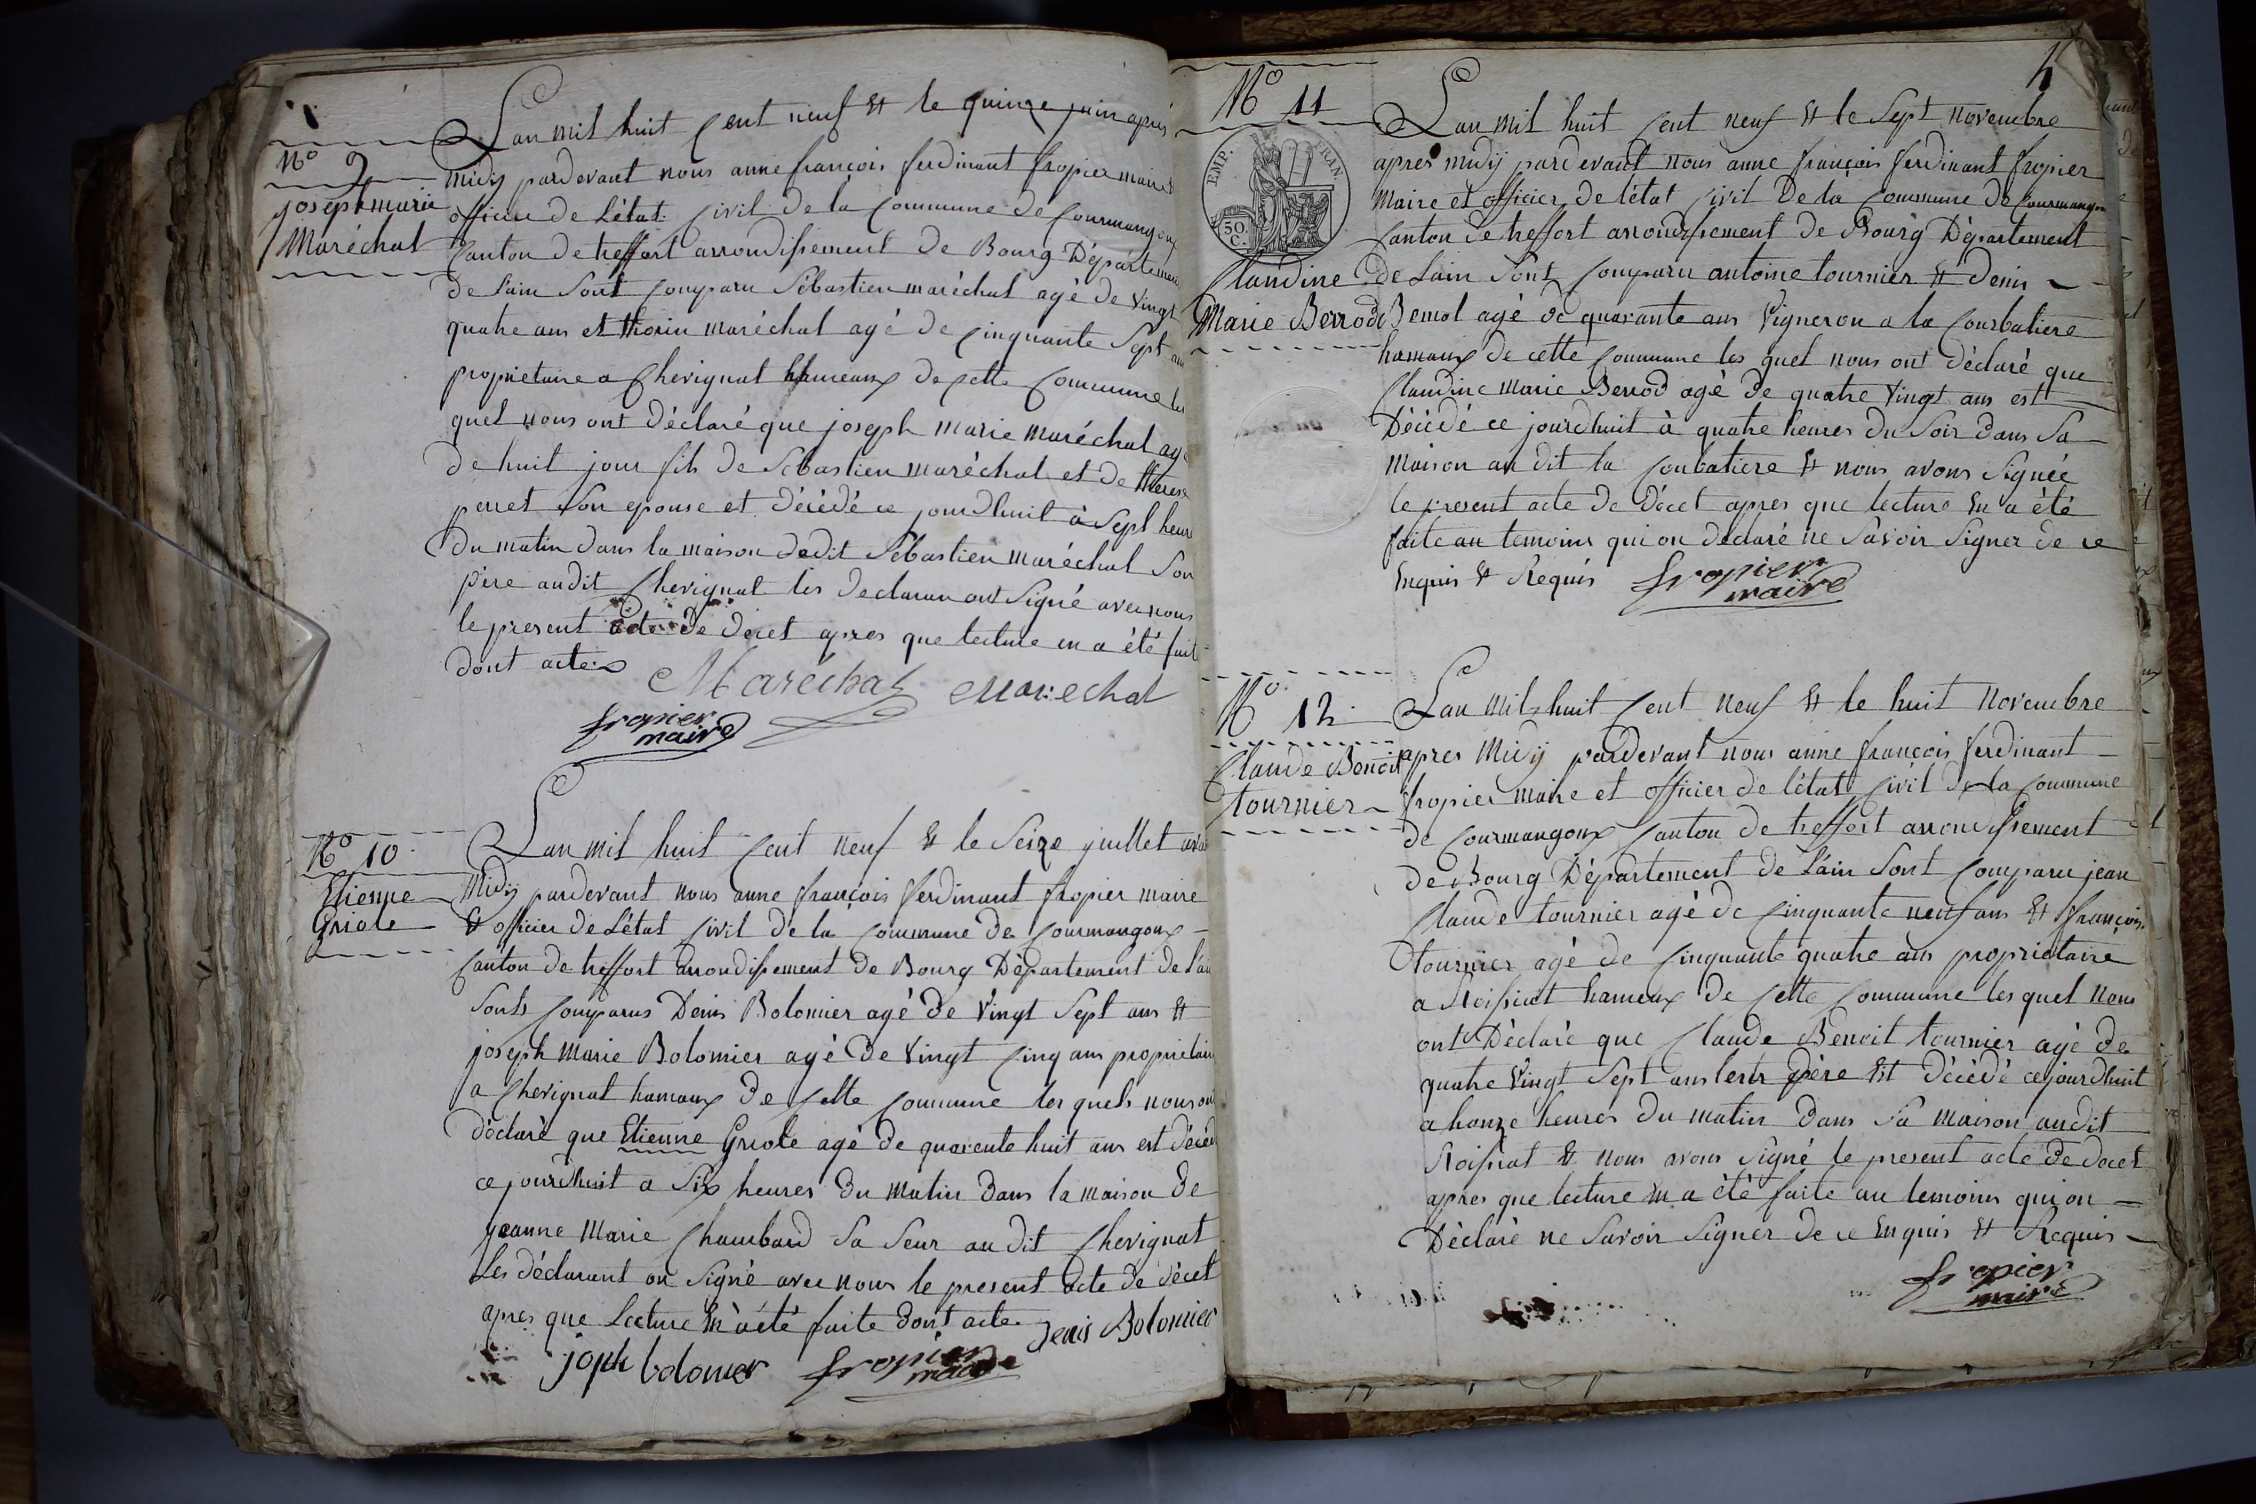 N° 9
joseph marie
Maréchal
Lan mil huit Cent neuf et le quinze juin après
midy pardevant nous anne françois ferdinant fropier maire
officier de Létat Civil de la Commune de Courmangoux
Canton de treffort arrondissement de Bourg Département
de Lain Sont Comparu Sébastien maréchal agé de Vingt
quatre ans et maréchal agé de Cinquante Sept ans
proprietaire a Chevignat hameaux de Cette Commune les
quel nous ont Déclaré que joseph marie maréchal agé
de huit jour fils de Sébastien maréchal et de therese
perret Son epouse et Décédé ce jourdhuit à Sept heure
Du matin dans la maison dedit Sébastien maréchal Son
père audit Chevignat les declaran ont Signé avec nous
le present acte de Decet apres que lecture en a été fait
dont acte
Maréchal Marechal
fropier
maire
N° 10
Etienne
Griole
Lan mil huit Cent neuf et le Seize juillet avan
Midy pardevant nous anne françois ferdinant fropier maire
et officier de Létat Civil de la Commune de Courmangoux
Canton de treffort arrondissement de Bourg Département de Lain
Sonts Comparus Denis Bolomier agé de Vingt Sept ans et
joseph Marie Bolomier agé De Vingt Cinq ans proprietaire
a Chevignat hameaux de Cette Commune les quels nous ont
déclaré que Etienne Griole agé de quarente huit ans est décédé
ce jourdhuit a Six heures du matin dans la maison de
jeanne Marie Chambard Sa Seur au dit Chevignat
Les déclarant on Signé avec nous le present acte de décet
apres que Lecture en à été faite dont acte Denis Bolomier
joph bolomier fropier
maire
4
N° 11
EMP. FRAN.
50.
C.
Claudine
Marie Berrod
Lan mil huit Cent neuf et le Sept novembre
apres midy pardevant nous anne françois ferdinant fropier
Maire et officier de létat Civil De la Commune de Courmangoux
Canton de treffort arrondissement de Bourg Département
de Lain Sont Comparu antoine tournier et Denis
agé de quarante ans Vigneron a la Courbatiere
hameaux de cette Commune les quel nous ont déclaré que
Claudine Marie Berrod agé de quatre Vingt ans est
Décédé ce jourdhuit à quatre heures Du Soir dans Sa
maison au dit la Coubatiere et nous avons Signée
le present acte de Décet apres que lecture en a été
faite au temoins qui on declaré ne Savoir Signer de ce
Enquis et Requis fropier
maire
N° 12
Claude Benoit
tournier
Lan mil huit Cent neuf et le huit Novembre
apres Midy pardevant nous anne françois ferdinant
fropier maire et officier de létat Civil de la Commune
de Courmangoux Canton de treffort arrondissement
de Bourg Département de Lain Sont Comparu jean
Claude tournier agé de Cinquante neuf ans et françois
tournier agé de Cinquante quatre ans proprietaire
a Roissiat hameux de Cette Commune les quel nous
ont Déclaré que Claude Benoit tournier agé de
quatre Vingt Sept ans leur père Est décédé cejourdhuit
a honze heures du matin Dans Sa maison audit
Roissiat et nous avons Signé le present acte de décet
apres que lecture en a été faite au temoins qui on
Déclaré ne Savoir Signer de ce Enquis et Requis
fropier
maire